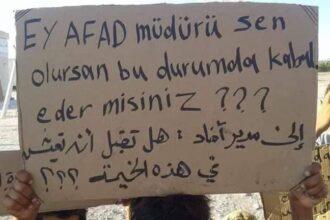 EY AFAD müdürü sen
olursan bu durumda kabul
eder misiniz ???
إلى مدير آفاد : هل تقبل أن تعيش
في هذه الخيمة ؟؟؟